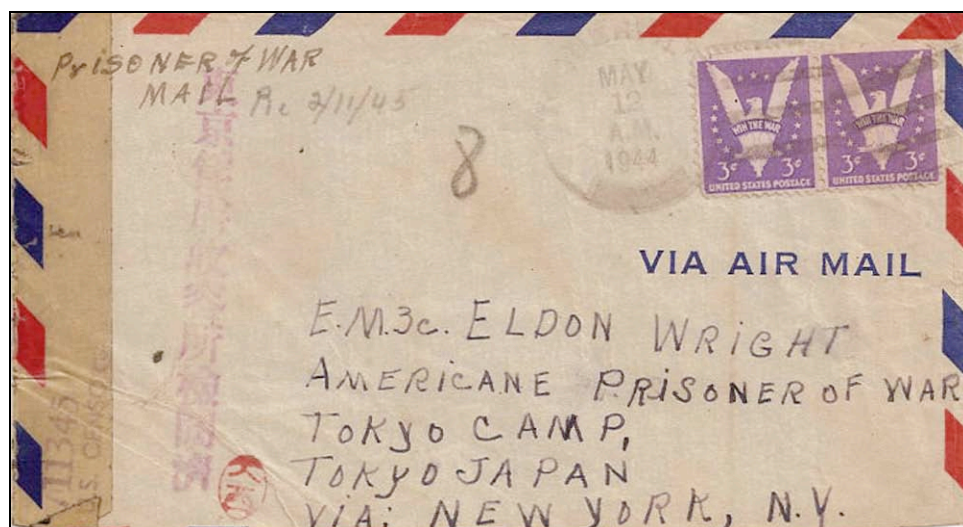 PRISONER of WAR
MAIL Re 2/11/45
MAY
12
A.M.
1944
8
WIN THE WAR WIN THE WAR
3¢ 3¢ 3¢ 3¢
UNITED STATES POSTAGE UNITED STATES POSTAGE
VIA AIR MAIL
E.M.3c. ELDON WRIGHT
AMERICANE PRISONER OF WAR
TOKYO CAMP,
TOKYO JAPAN
VIA: NEW YORK, N.Y.
11345
U.S. CENSOR